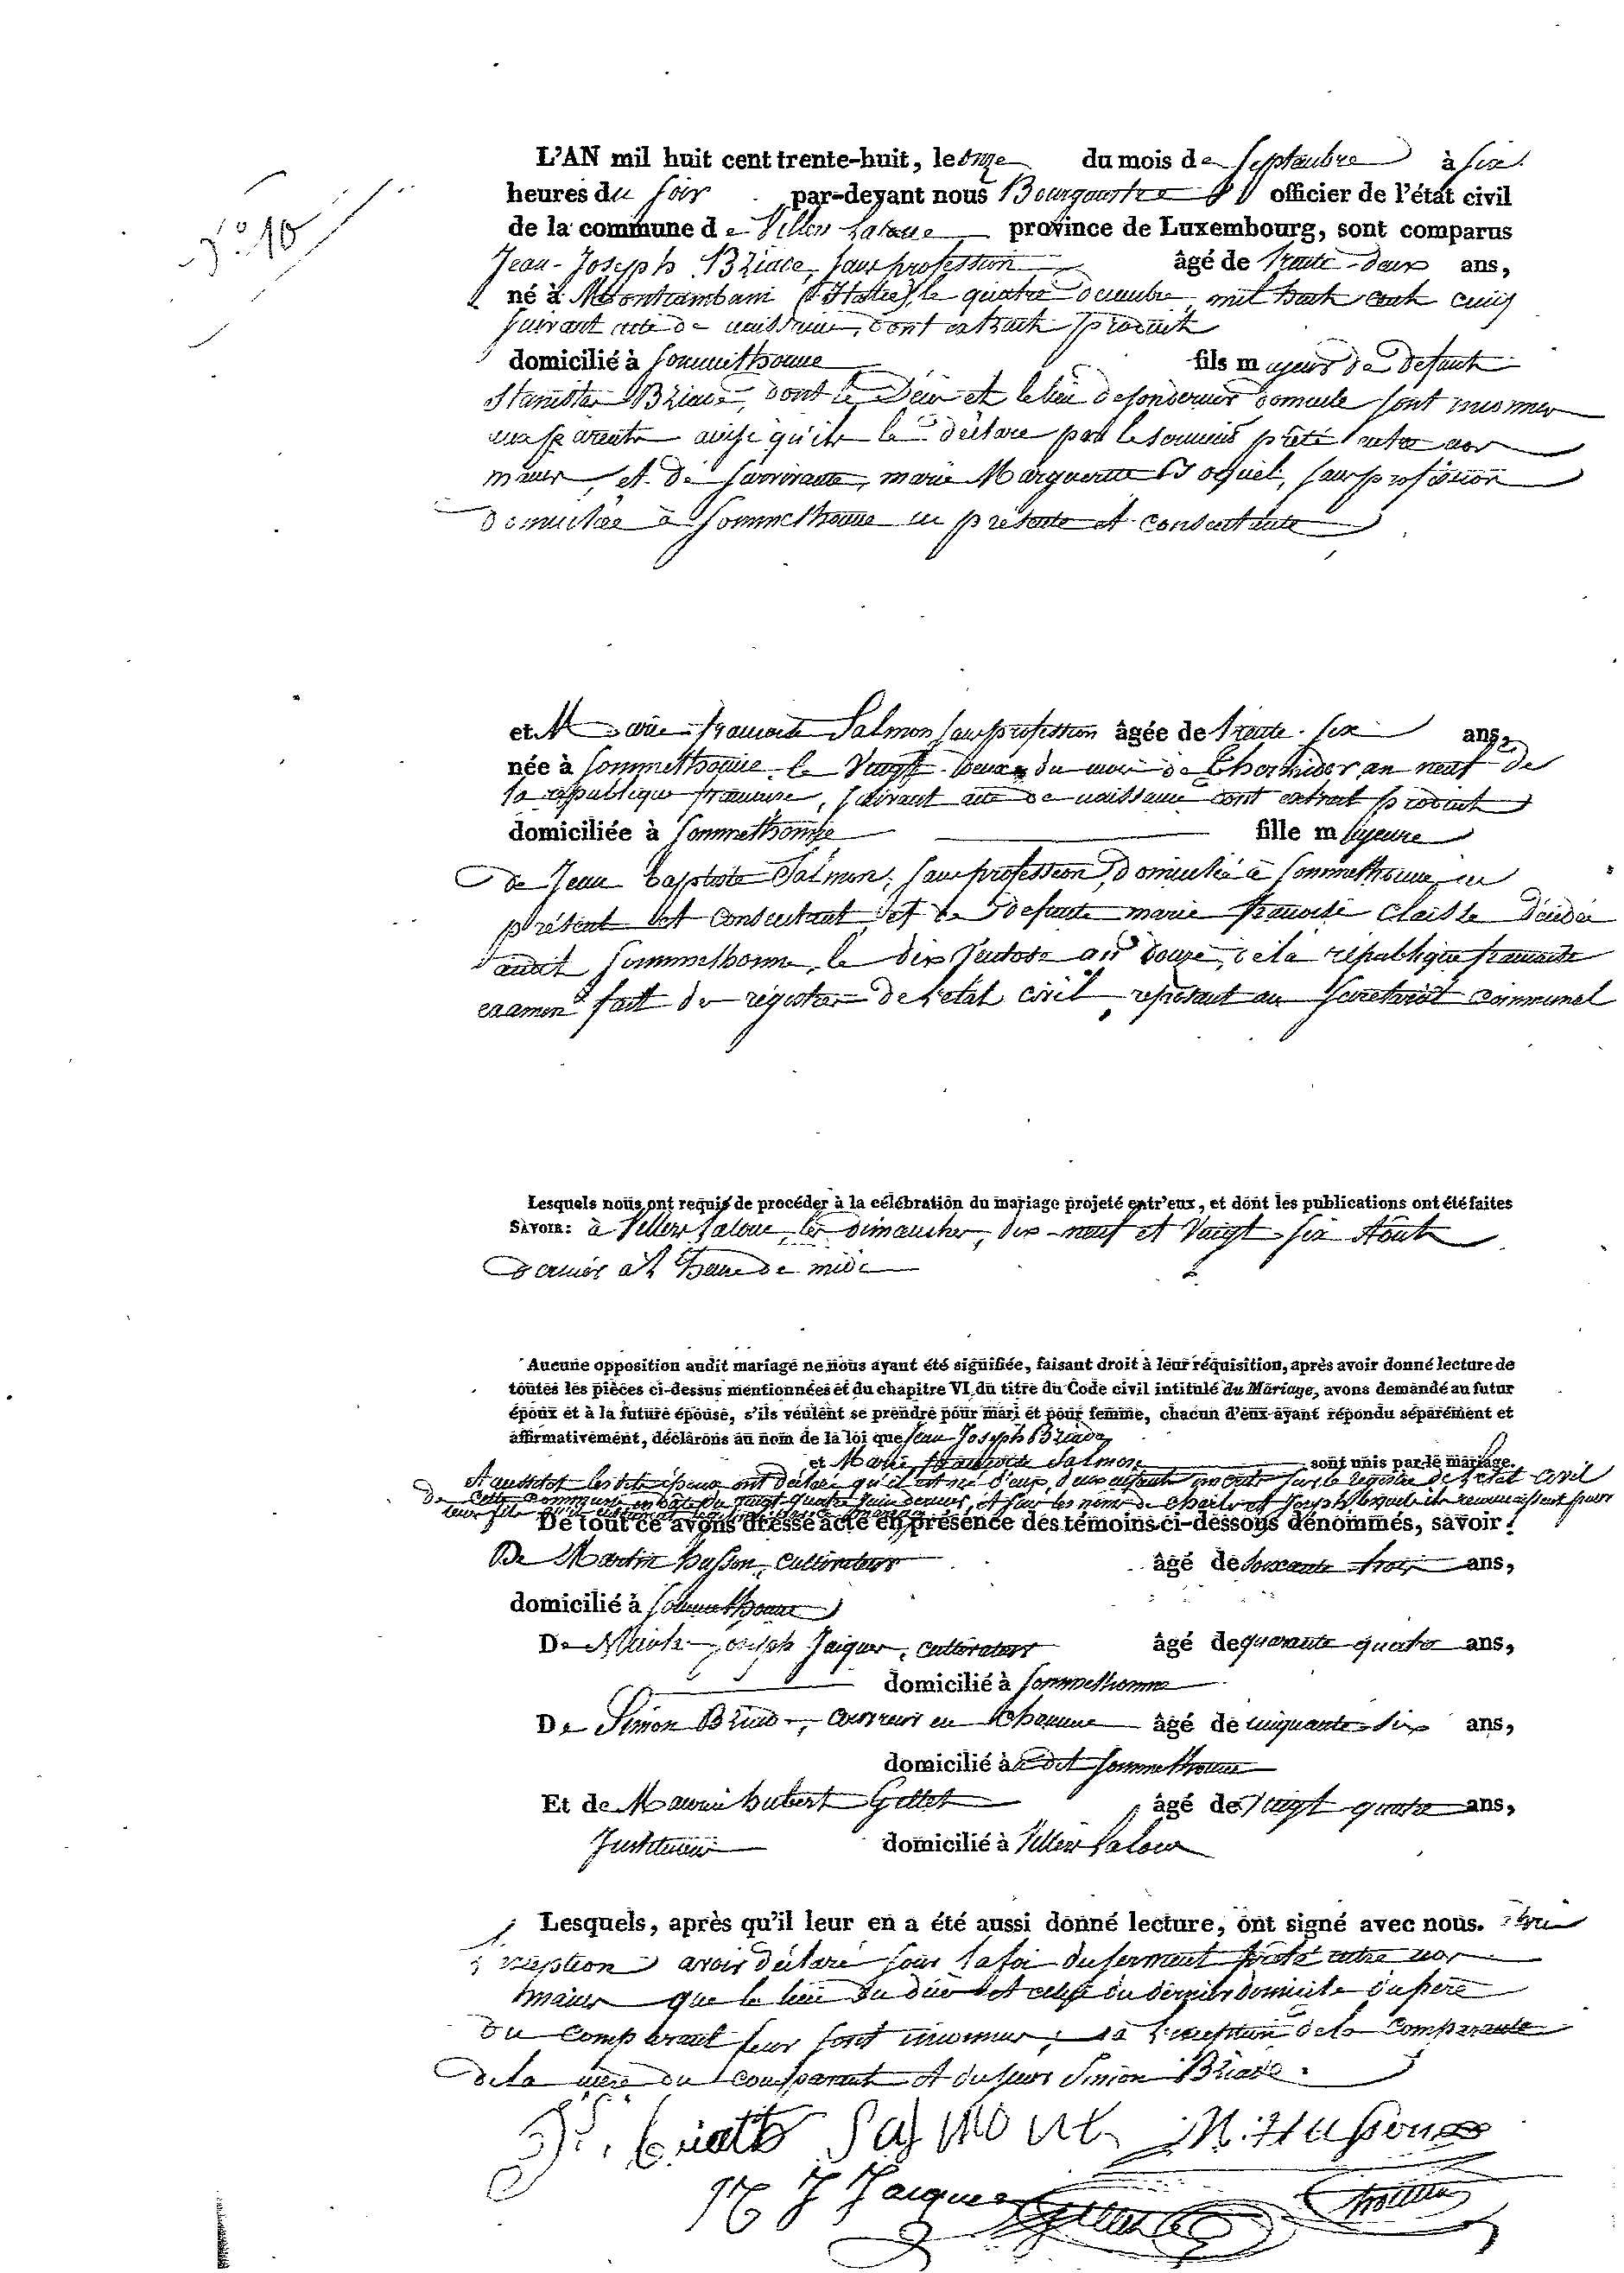 N° 10
L'AN mil huit cent trente-huit, le onze du mois de Septembre à six
heures du soir par-devant nous Bourgmestre officier de l'état civil
de la commune de Villers Laloue province de Luxembourg, sont comparus
Jean-Joseph Briade, sans profession âgé de trente-deux ans,
né à (Italie), le quatre décembre mil huit cent cinq
suivant acte de naissance, dont extrait produit
domicilié à Sommethonne fils majeur de défunt
Stanislas Briade, dont le décès et le lieu de son dernier domicile sont inconnus
ainsi qu'ils le déclare par le serment prêté entre nos
mains, et de survivante, marie Marguerite sans profession
domiciliée à Sommethonne ici présente et consentante
et Marie françoise Salmon sans profession âgée de trente-six ans,
née à Sommethonne, le vingt deux du mois de Thermidor an neuf de
la république française, suivant acte de naissance dont extrait produit
domiciliée à Sommethonne fille majeure
de Jean Baptiste Salmon, sans profession, domicilié à Sommethonne, ici
présent et consentant et de défunte marie françoise Claisse décédée
audit Sommethonne, le dix Ventose an douze, de la république française
examen fait du registre de l'état civil reposant au Secretariat communal
Lesquels nous ont requis de procéder à la célébration du mariage projeté entr'eux, et dont les publications ont été faites
SAVOIR: à Villers Laloue, les dimanches, dix-neuf et vingt six Août
dernier à l'heure de midi
Aucune opposition audit mariage ne nous ayant été signifiée, faisant droit à leur réquisition, après avoir donné lecture de
toutes les pièces ci-dessus mentionnées et du chapitre VI du titre du Code civil intitulé du Mariage, avons demandé au futur
époux et à la future épouse, s'ils veulent se prendre pour mari et pour femme, chacun d'eux ayant répondu séparément et
affirmativement, déclarons au nom de la loi que Jean Joseph Briade
et Marie françoise Salmon sont unis par le mariage.
Et aussitot les dits époux ont déclaré qu'il est né d'eux, deux enfants inscrits sur le registre de l'état civil
de cette commune en date du vingt quatre Juin dernier, et sur les noms de Charles et Joseph lesquels ils reconnaissent pour
leur fils
De tout ce avons dressé acte en présence des témoins ci-dessous dénommés, savoir:
De Martin Husson, cultivateur âgé de soixante trois ans,
domicilié à Sommethonne
De Joseph Jaiques, cultivateur âgé de quarante quatre ans,
domicilié à Sommethonne
De Simon Briade, couvreur en chaume âgé de cinquante six ans,
domicilié à dit Sommethonne
Et de hubert Gillet âgé de vingt quatre ans,
Instituteur domicilié à Villers Laloue
Lesquels, après qu'il leur en a été aussi donné lecture, ont signé avec nous.
exception avoir déclaré sous la foi du serment prêté entre nos
mains que le lieu du décès et celui du dernier domicile du père
du comparant leur sont inconnus, à l'exception de la comparante
de la mère du comparant et du sieur Simon Briade.
Salmont M. Husson
J Jaiques Gillet